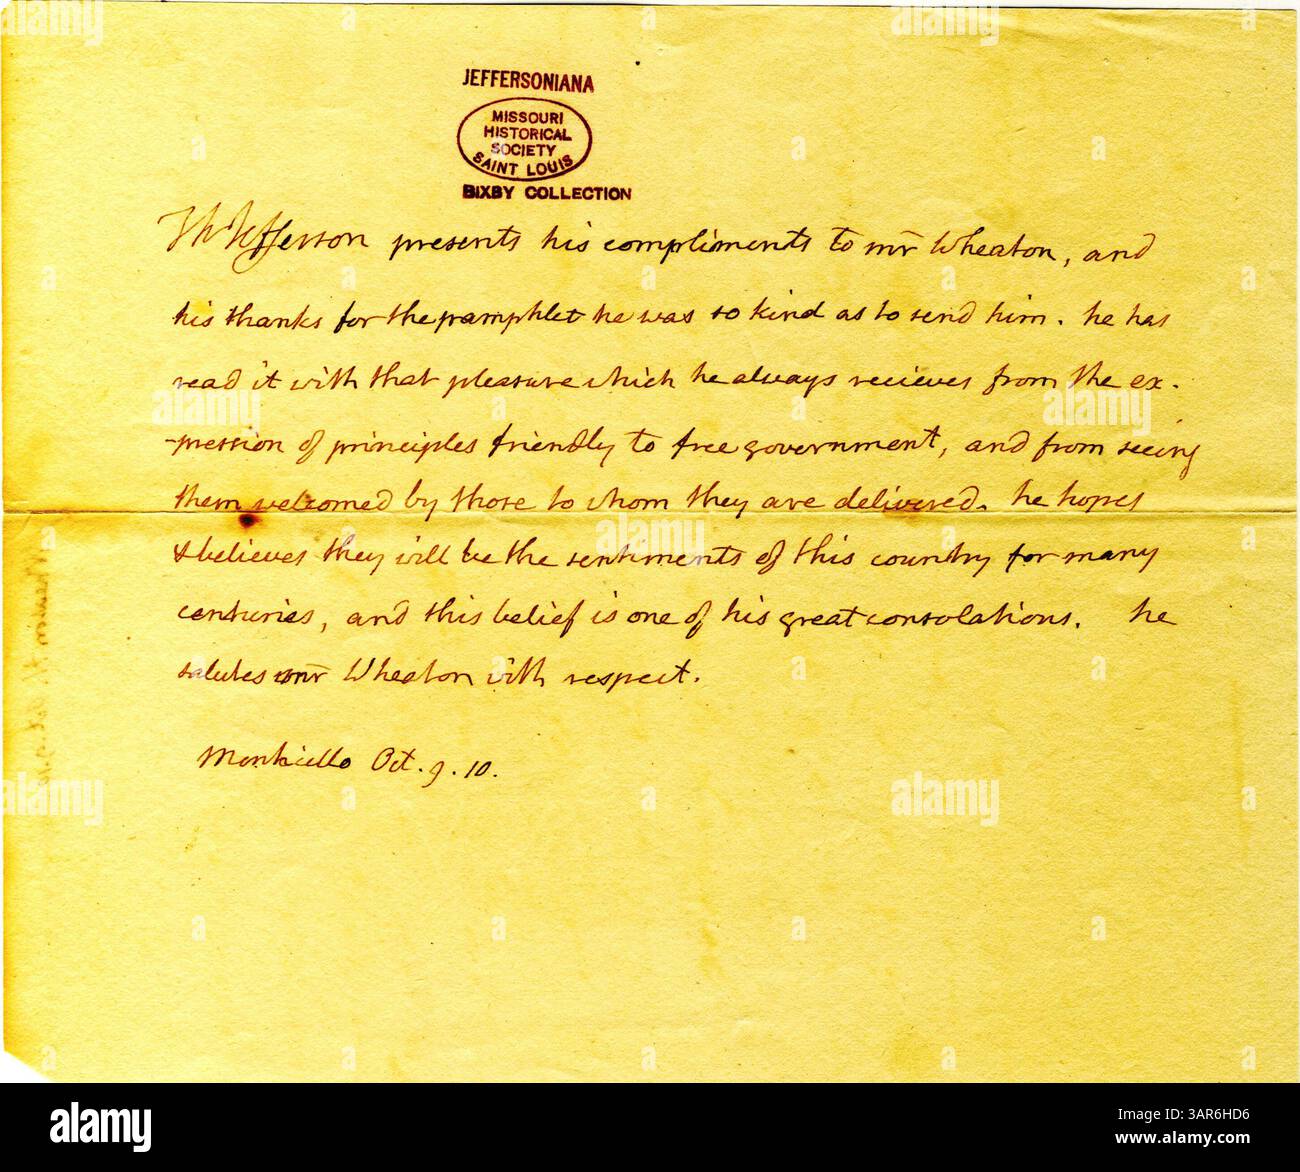 JEFFERSONIANA
MISSOURI
HISTORICAL
SOCIETY
SAINT LOUIS
BIXBY COLLECTION
Th Jefferson presents his compliments to mr Wheaton, and
his thanks for the pamphlet he was so kind as to send him. he has
read it with that pleasure which he always recieves from the ex-
-pression of principles friendly to free government, and from seeing
them welcomed by those to whom they are delivered. he hopes
& believes they will be the sentiments of this country for many
centuries, and this belief is one of his great consolations. he
salutes mr Wheaton with respect.
Monticello Oct. 9. 10.
alamy
a
Image ID: 3AR6HD6
www.alamy.com